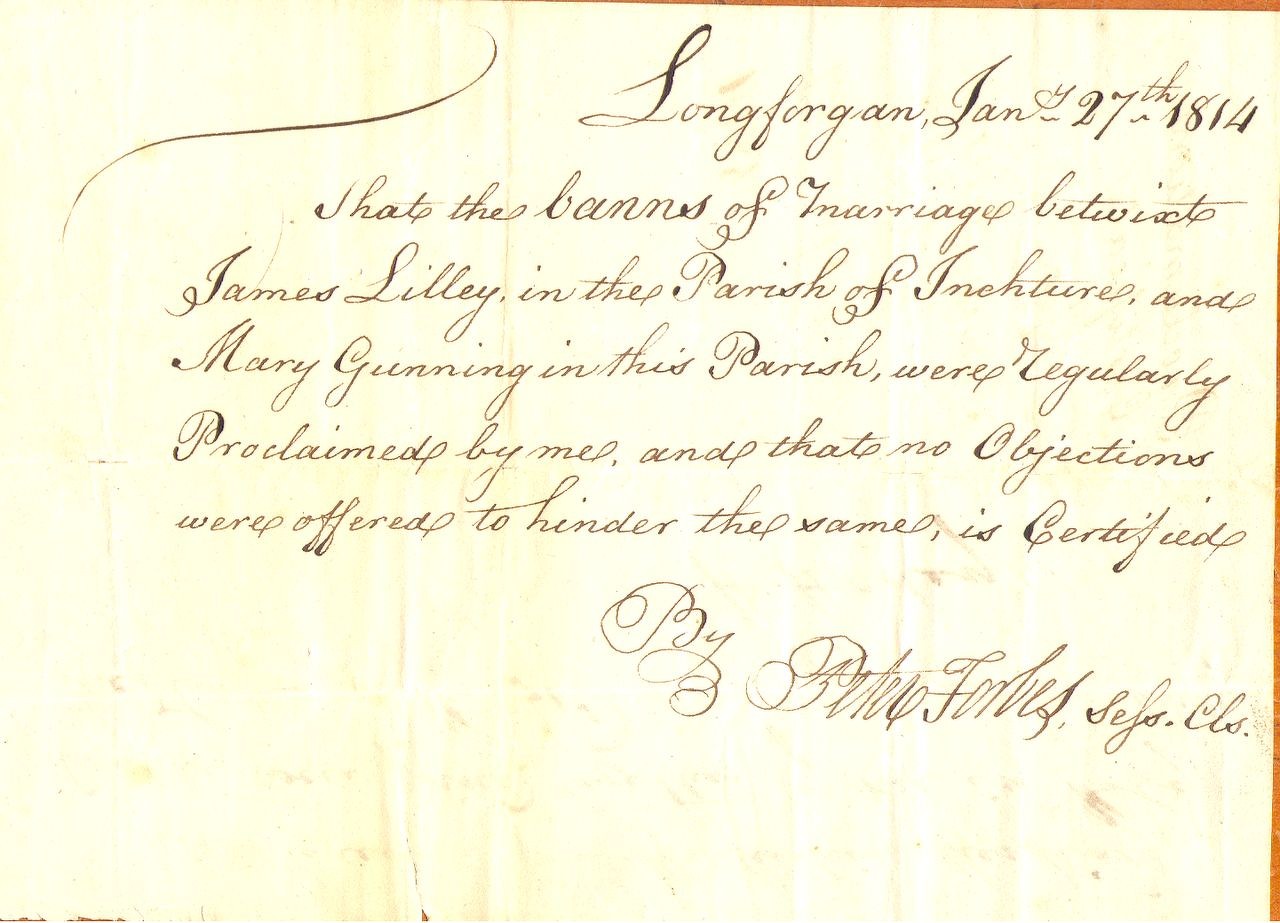 Longforgan, Jan.y 27th 1814
That the banns of Marriage betwixt
James Lilley, in the Parish of Inchture, and
Mary Gunning in this Parish, were regularly
Proclaimed by me, and that no Objections
were offered to hinder the same, is Certified
By
Peter Forbes, Sess. Cls.